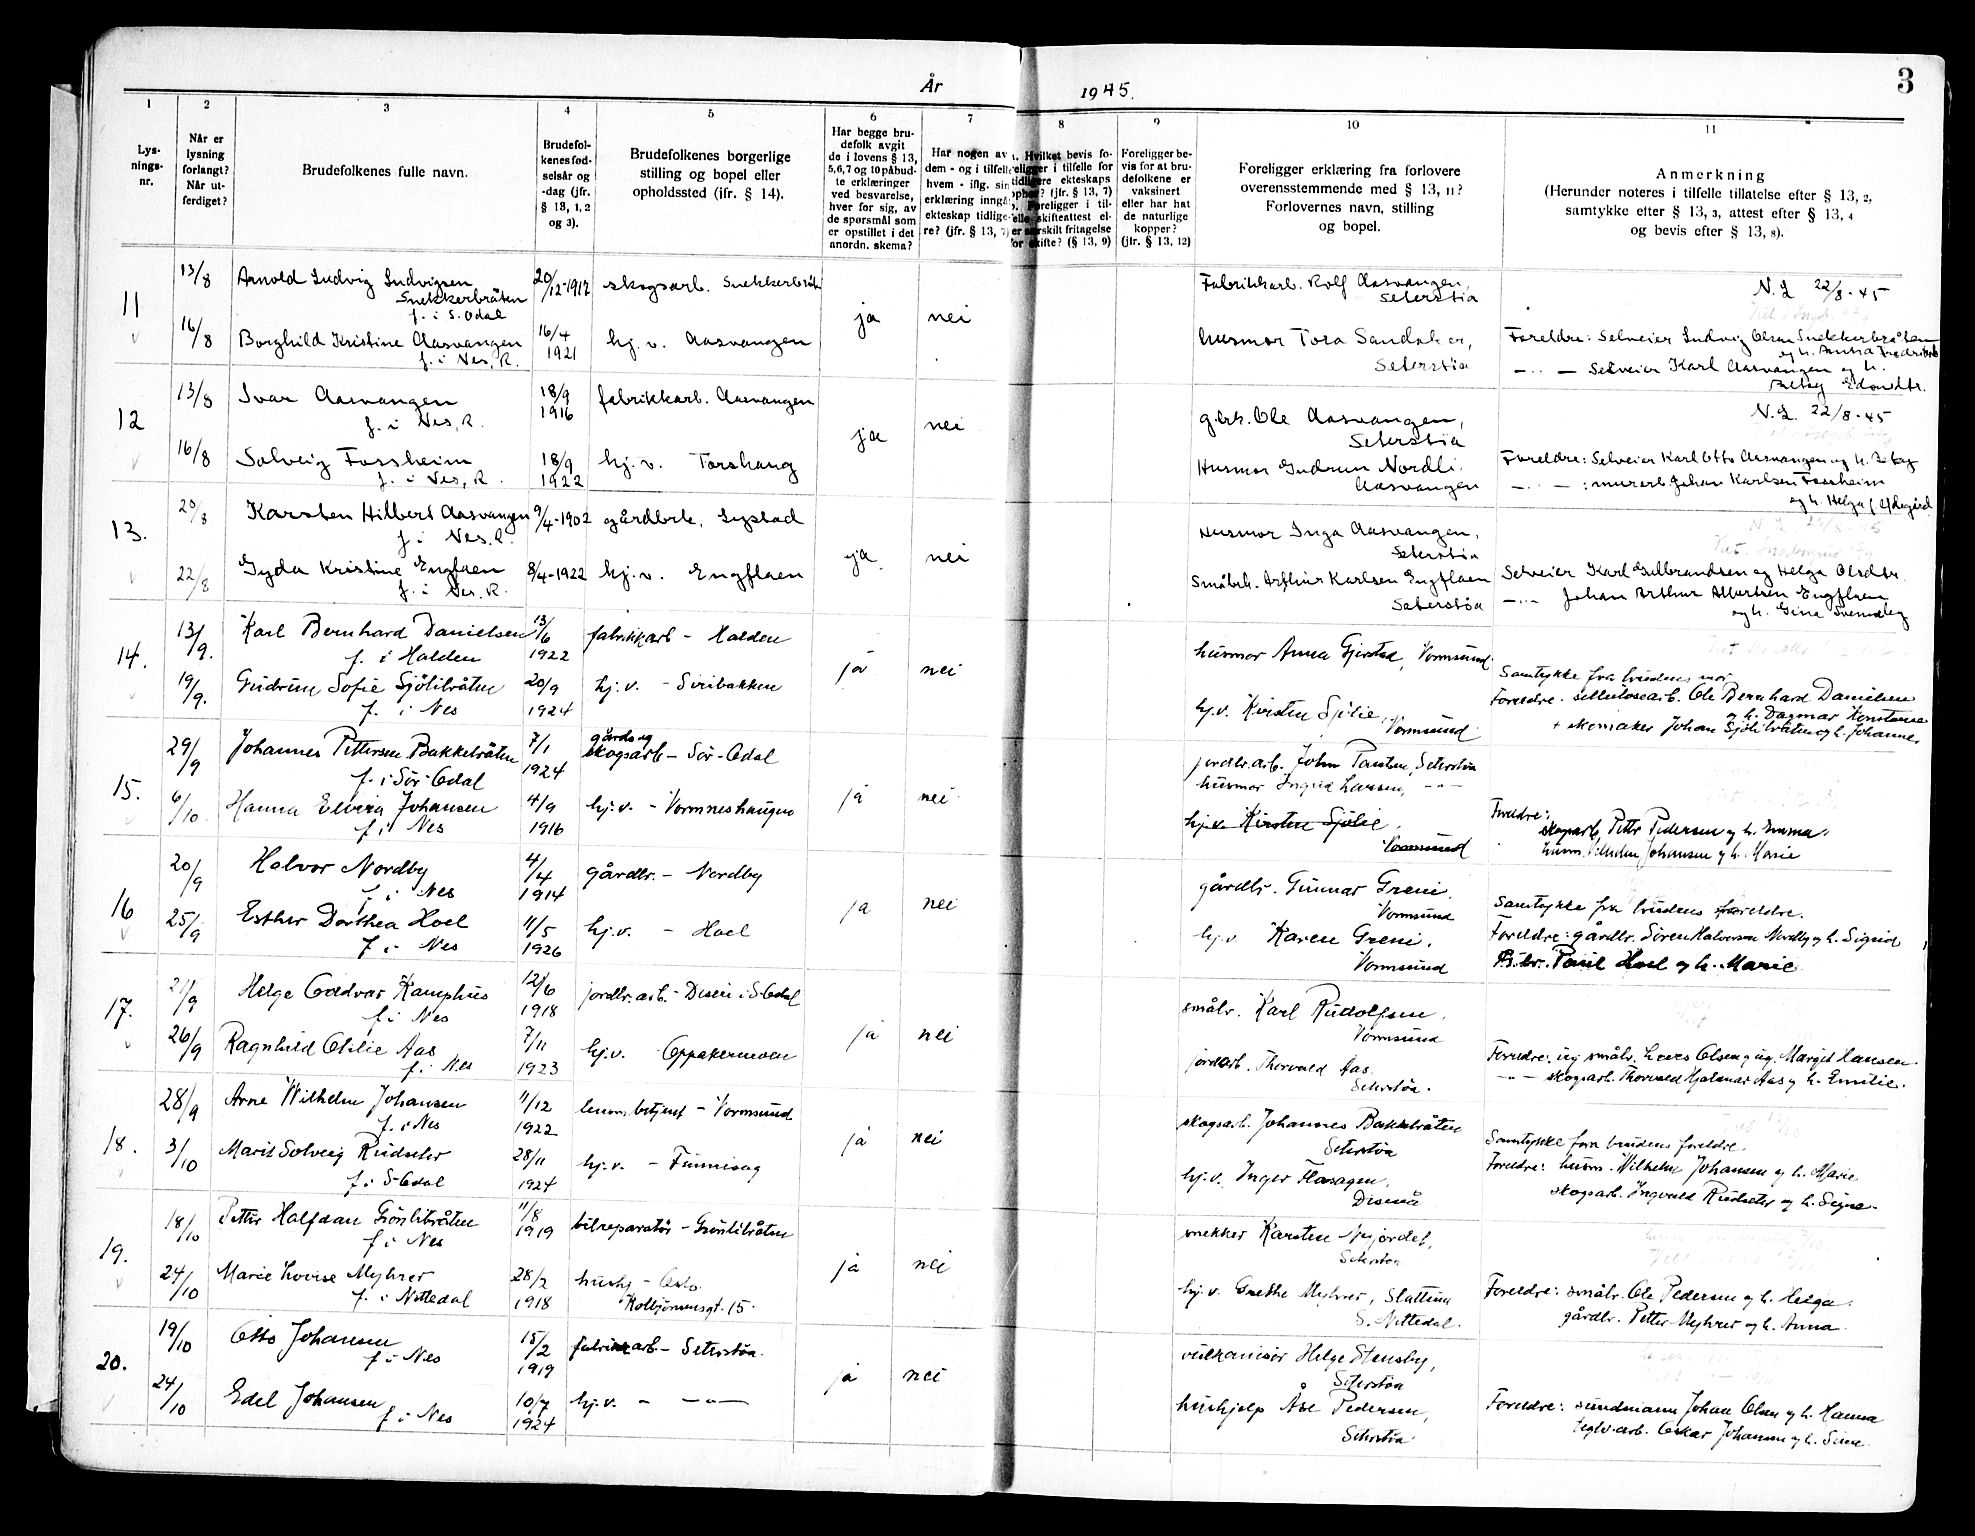 År 1945.
3
1 2 3 4 5 6 7 8 9 10 11
Lys-
nings-
nr.
Når er
lysning
forlangt?
Når ut-
ferdiget?
Brudefolkenes fulle navn.
Brudefol-
kenes fød-
selsår og
-dag (jfr.
§ 13, 1, 2
og 3).
Brudefolkenes borgerlige
stilling og bopel eller
opholdssted (ifr. § 14).
Har begge bru-
defolk avgit
de i lovens § 13,
5, 6, 7 og 10 påbud-
te erklæringer
ved besvarelse,
hver for sig, av
de spørsmål som
er opstillet i det
anordn. skema?
Har nogen av
dem - og i tilfelle
hvem - iflg. sin
erklæring inngå
ekteskap tidlige-
re? (jfr. § 13, 7)
Hvilket bevis fo-
religger i tilfelle for
tidligere ekteskaps
ophør? (jfr. § 13, 7)
Foreligger i til-
felle skifteattest el-
er særskilt fritagelse
for skifte? (§ 13, 9)
Foreligger be-
vis for at bru-
defolkene er
vaksinert
eller har hat
de naturlige
kopper?
(jfr. § 13, 12)
Foreligger erklæring fra forlovere
overensstemmende med § 13, 11?
Forlovernes navn, stilling
og bopel.
Anmerkning
(Herunder noteres i tilfelle tillatelse efter § 13, 2,
samtykke efter § 13, 3, attest efter § 13, 4
og bevis efter § 13, 8).
11 13/8 Arnold Ludvig Ludvigsen 20/12-1917 skogsarb. Snekkerbråt Fabrikkarb. Rolf Aasvangen, N.L 22/8-45
Snekkerbråten Seterstøa
f. i S. Odal ja nei
16/8 Borghild Kristine Aasvangen 16/4 hj. v. Aasvangen husmor Tora Sandaker, Foreldre: Selveier Ludvig Olsen Snekkerbråten
f. i Nes, R. 1921 Seterstøa og h.
Selveier Karl Aasvangen og h.
12 13/8 Ivar Aasvangen 18/9 fabrikkarb. Aasvangen g.brk. Ole Aasvangen, N.L. 22/8-45
f. i Nes, R. 1916 ja nei Seterstøa
16/8 Solveig Fossheim 18/9 hj. v. Torshaug Husmor Gudrun Nordli, Foreldre: Selveier Karl Otto Aasvangen og h.
f. i Nes, R. 1922 Aasvangen : murarb Johan Karlsen Fossheim
og h. Helga
13. 20/8 Karsten Hilbert Aasvangen 9/4-1902 gårdbrk. Lystad Husmor Inga Aasvangen,
f. i Nes. R. ja nei Seterstøa
22/8 Gyda Kristine Engflaen 8/4-1922 hj. v. Engflaen Småbrk. Arthur Karlsen Engflaen Selveier Karl Gulbrandsen og Helga Olsdtr.
f. i Nes. R. Seterstøa Johan Arthur Engflaen
og h. Gina
14. 13/9. Karl Bernhard Danielsen 13/6 fabrikkarb - Halden husmor Anna Gjerstad, Vormsund
f. i Halden 1922 ja nei Samtykke fra brudens mor
19/9. Gudrun Sofie Sjølibråten 20/9 hj. v. - Siribakken hj.v. Kirsten Sjølie, Foreldre. sellulosearb. Ole Bernhard Danielsen
f. i Nes 1924 Vormsund og h. Dagmar Konstanse
+ skomaker Johan Sjølibråten og h. Johanne
15. 29/9 Johannes Pettersen Bakkebråten 7/1 gårds og jordbr.arb. John Paulsen, Seterstøa
f. i Sør-Odal 1924 skogsarb - Sør-Odal husmor Ingrid Larsen, -"-
6/10 Hanna Elvira Johansen 4/9 hj.v. - Vormneshaugen ja nei hj.v. Kirsten Sjølie, Foreldre:
f. i Nes 1916 Vormsund skogsarb. Petter Pedersen og h. Emma.
husm. Vilhelm Johansen og h. Marie
16 20/9 Halvor Nordby 4/4 gårdbr. - Nordby gårdbr. Gunnar Greni,
f. i Nes 1914 ja nei Vormsund Samtykke fra brudens foreldre.
25/9 Esther Dorthea Hoel 11/5 hj.v. - Hoel hj.v. Karen Greni, Foreldre: gårdbr. Søren Halvorsen Nordby og h. Sigrid
f. i Nes 1926 Vormsund Paul Hoel og h. Marie
17. 21/9 Helge Oddvar Kamphus 12/6 jordbr.arb. - Disen i S-Odal småbr. Karl Rudolfsen,
f. i Nes 1918 ja nei Vormsund
26/9 Ragnhild Otilie Aas 7/11 hj.v. Oppakermoen jordarb. Thorvald Aas, Foreldre: ug småbr. Olsen og ug. Margit Hansen
f. i Nes 1923 Seterstøa. -"- skogsarb. Thorvald Hjalmar Aas og h. Emilie.
18. 28/9 Arne Wilhelm Johansen 11/12 lensm.betjent - Vormsund skogsarb. Johannes Bakkebråten
f. i Nes 1922 ja nei Seterstøa Samtykke fra brudens foreldre.
3/10 Marit Solveig Rudseter 28/11 hj.v. - Funnisag hj.v. Inger Flasagen, Foreldre: husm. Wilhelm Johansen og h. Marie
f. i S-Odal 1924 Disenå skogsarb. Ingvald Rudseter og h. Signe.
19. 18/10 Petter Halfdan Grønlibråten 11/8 bilreparatør - Grønlibråten snekker Karsten Nyjordet,
f. i Nes 1919 ja nei Seterstøa
24/10 Marie Lovise Myhrer 28/2 hushj - Oslo. hj.v. Grethe Myhrer, Slattum Foreldre: småbr. Ole Pedersen og h. Helga.
f. i Nittedal 1918 Kolbjørnsensgt. 15. S. Nittedal. gårdbr. Petter Myhrer og h. Anna.
20. 19/10 Otto Johansen 15/2 fabrikkarb - Seterstøa. vulkanisør Helge Stensby,
f. i Nes 1919 ja nei Seterstøa
24/10 Edel Johansen 10/7 hj.v. - -"- hushjelp Åse Pedersen, Foreldre: sundmann Johan Olsen og h. Hanna
f. i Nes 1924 Seterstøa teglv.arb. Oskar Johansen og h. Sina.